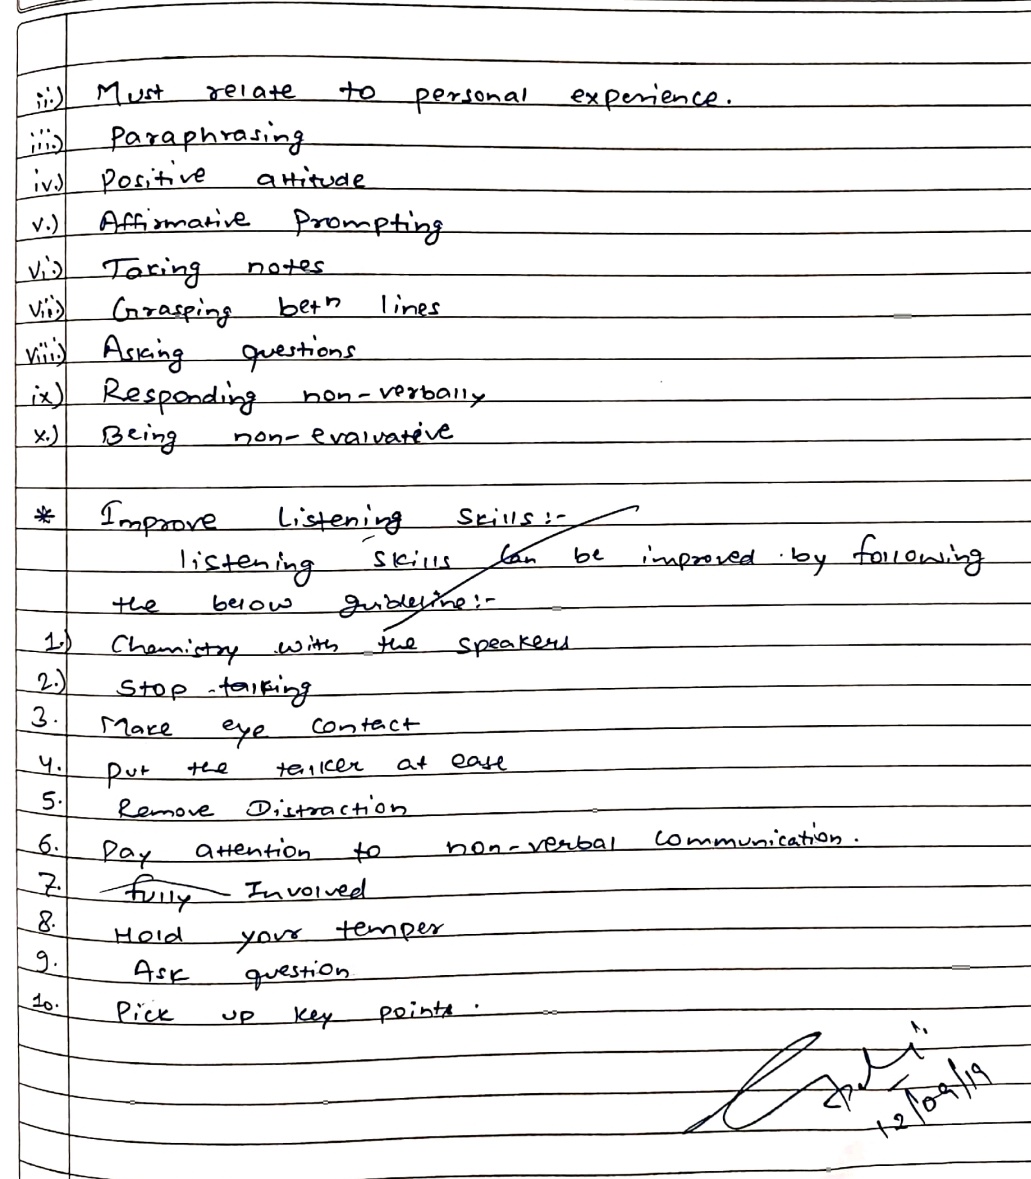 ii.) Must relate to personal experience.
iii.) Paraphrasing
iv.) Positive attitude
v.) Affirmative Prompting
vi.) Taking notes
vii.) Grasping betn lines
viii.) Asking questions
ix.) Responding non-verbally
x.) Being non-evaluative
* Improve Listening Skills:-
listening skills Can be improved by following
the below guideline:-
1.) Chemistry with the speakers
2.) Stop talking
3. Make eye contact
4. Put the talker at ease
5. Remove Distraction
6. Pay attention to non-verbal communication.
7. fully Involved
8. Hold your temper
9. Ask question
10. Pick up key points.
12/09/19